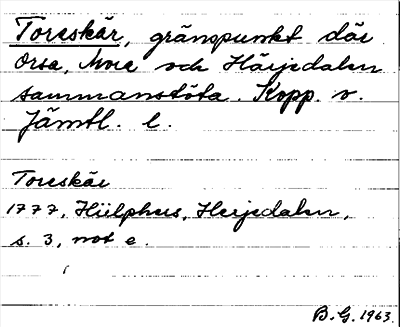 Toreskär, gränspunkt där
Orsa, Mora och Härjedalen
sammanstöta. Kopp. o.
Jämtl. l.
Toreskär
1777, Hülphers, Herjedalen,
s. 3, not e.
B. G. 1963.